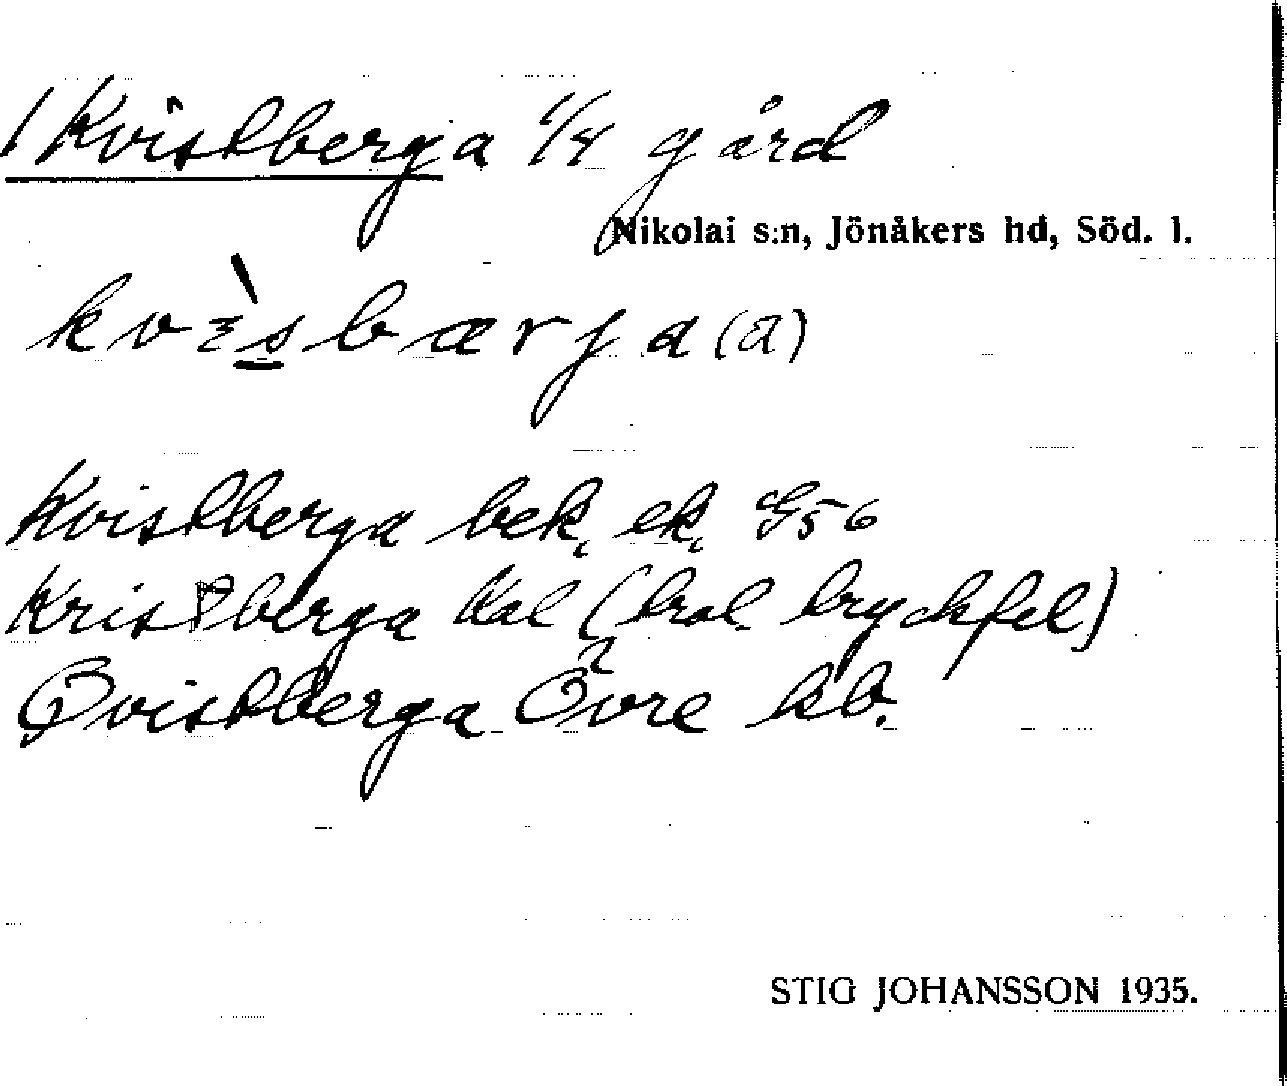 1 Kvistberga 1/4 gård
Nikolai s:n, Jönåkers hd, Söd. l.
kvɩ̀sbærja (a)
Kvistberga bek. ek. G56
Kristberga Kal (trol. tryckfel)
Qvistberga Övre kb.
STIG JOHANSSON 1935.